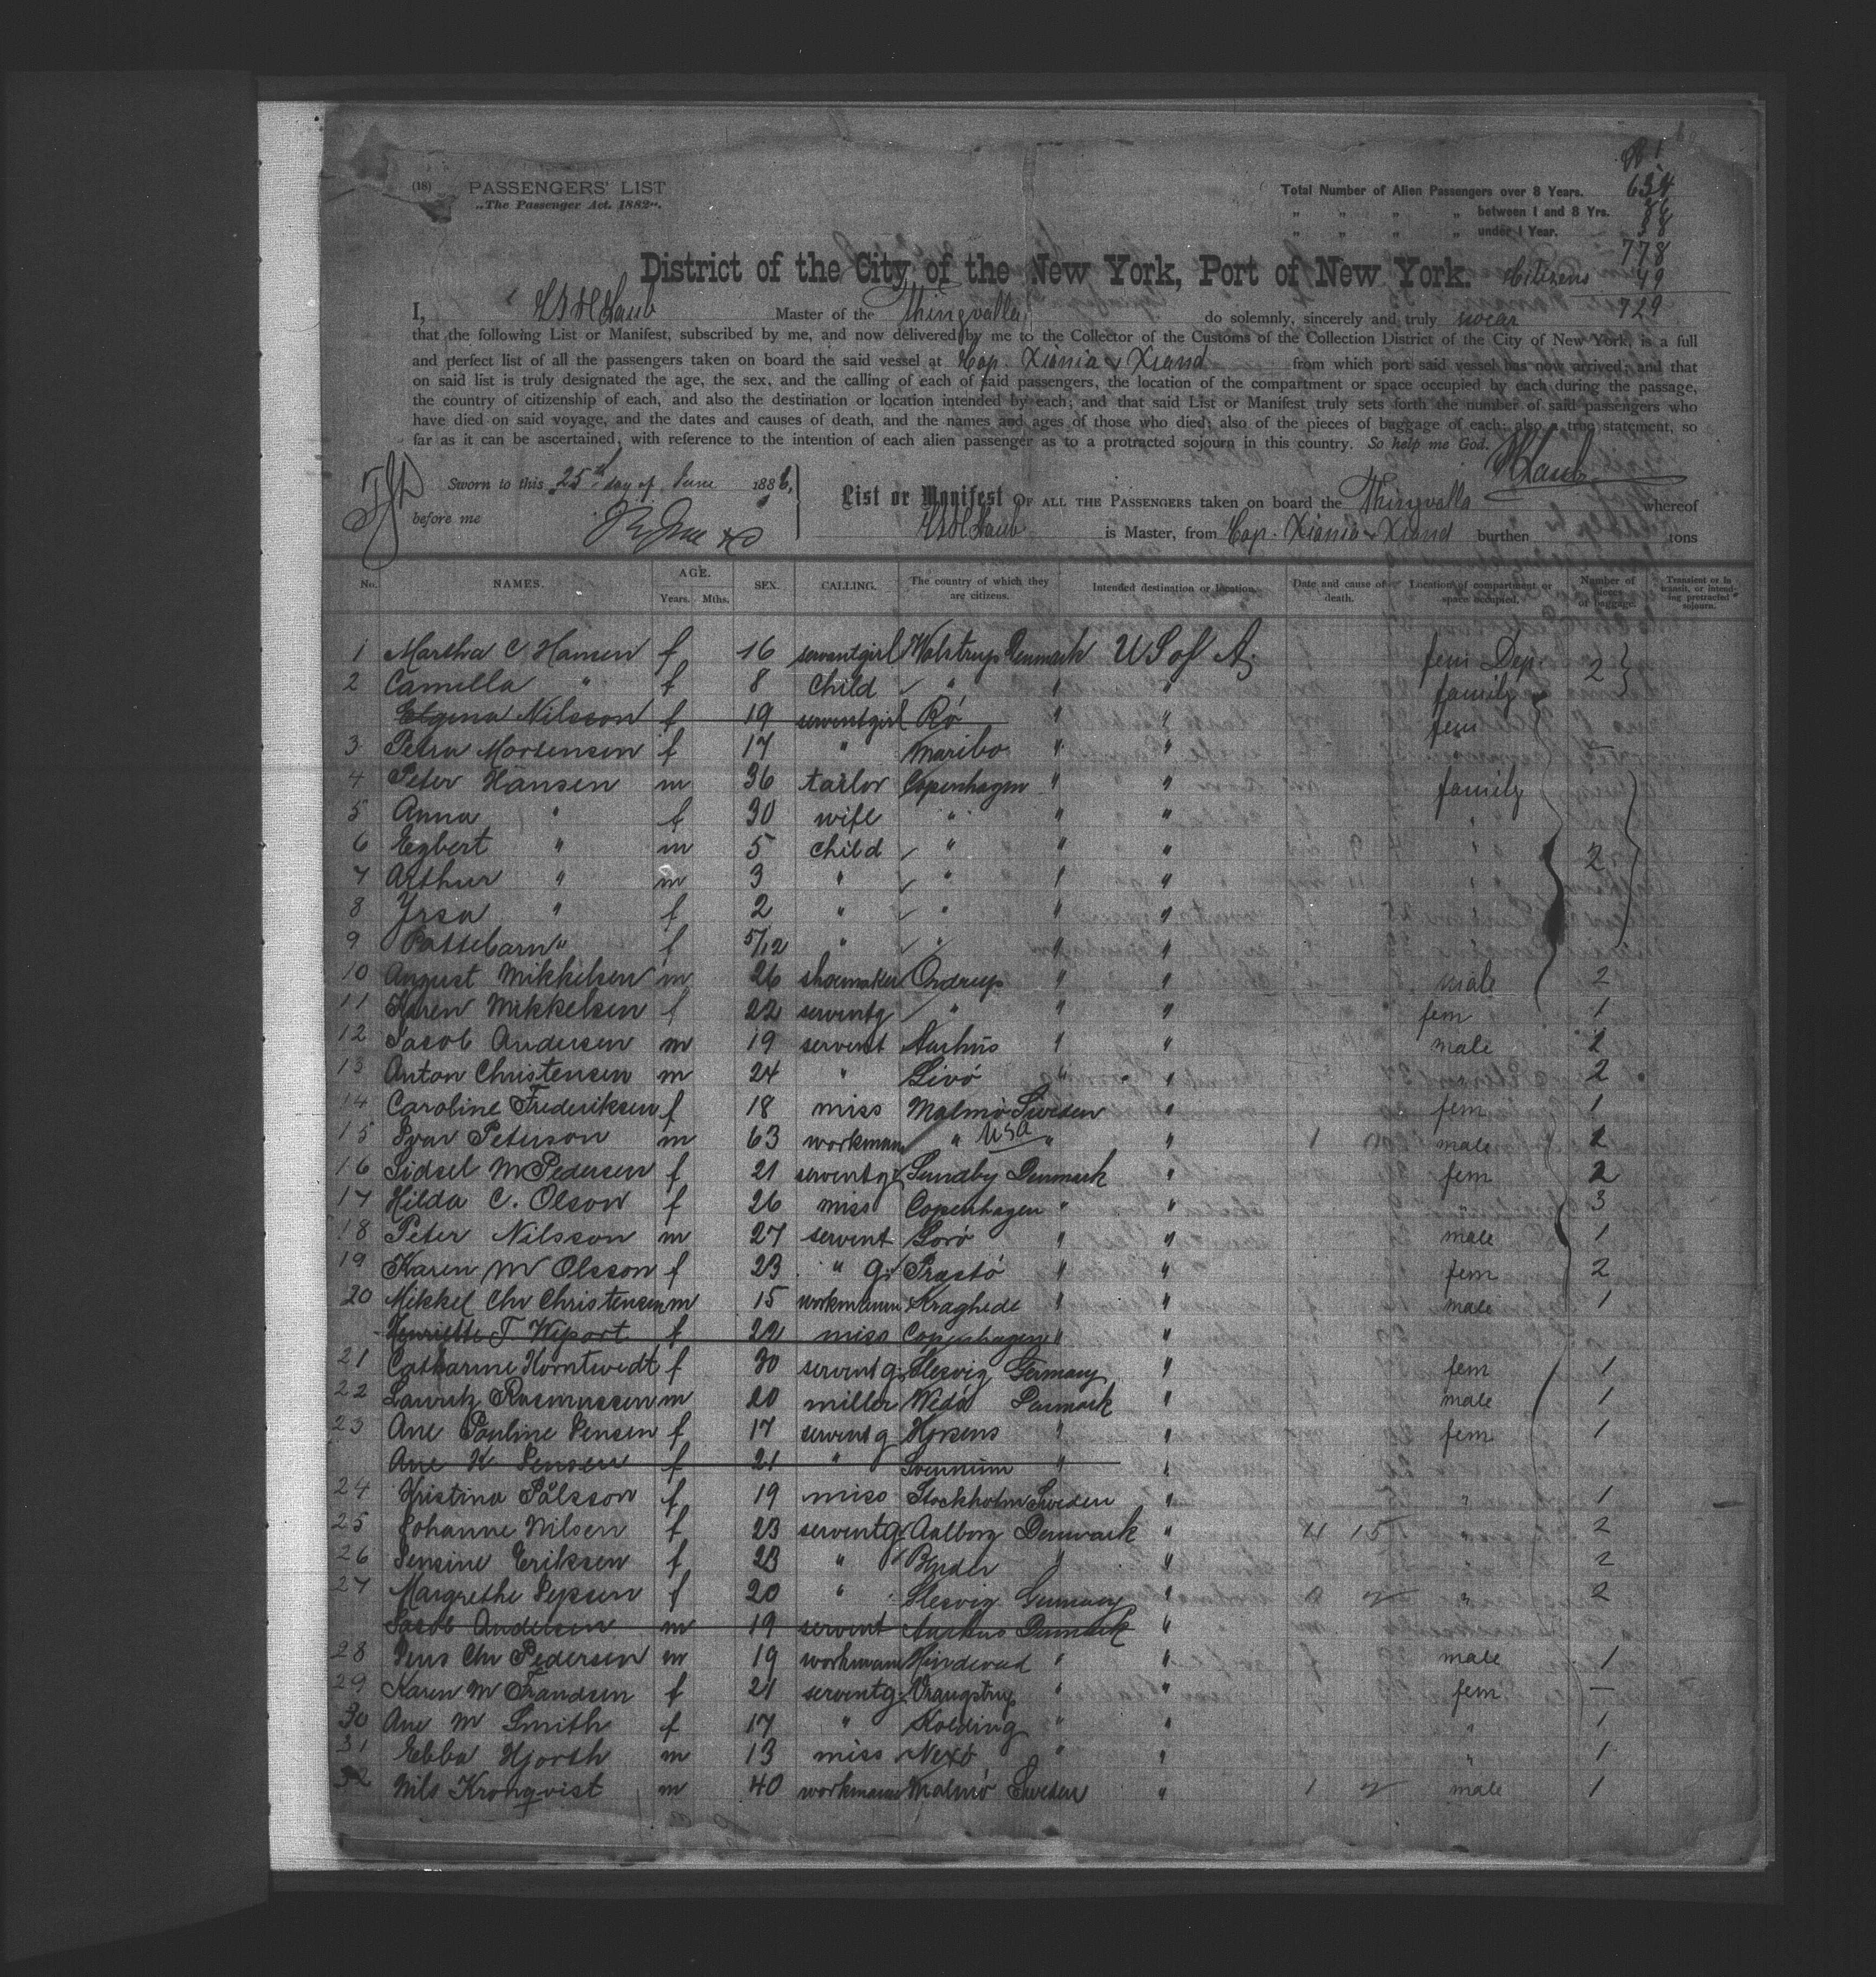 (18) PASSENGERS' LIST
„The Passenger Act. 1882".
Total Number of Alien Passengers over 8 Years. 654
„ „ „ „ between 1 and 8 Yrs. 86
„ „ „ „ under 1 Year. 38
778
District of the City of the New York, Port of New York. Citizens 49
729
I, Laub Master of the Thingvalla do solemnly, sincerely and truly swear
that the following List or Manifest, subscribed by me, and now delivered by me to the Collector of the Customs of the Collection District of the City of New York, is a full
and perfect list of all the passengers taken on board the said vessel at Cop. Xiania & Xsand from which port said vessel has now arrived; and that
on said list is truly designated the age, the sex, and the calling of each of said passengers, the location of the compartment or space occupied by each during the passage,
the country of citizenship of each, and also the destination or location intended by each; and that said List or Manifest truly sets forth the number of said passengers who
have died on said voyage, and the dates and causes of death, and the names and ages of those who died; also of the pieces of baggage of each; also a true statement, so
far as it can be ascertained, with reference to the intention of each alien passenger as to a protracted sojourn in this country. So help me God.
Laub
Sworn to this 25th day of June 1886,
before me
List or Manifest OF ALL THE PASSENGERS taken on board the Thingvalla whereof
Laub is Master, from Cop. Xiania & Xsand burthen tons
No. NAMES. AGE. Years. Mths. SEX. CALLING. The country of which they are citizens. Intended destination or location. Date and cause of death. Location of compartment or space occupied. Number of pieces of baggage. Transient or in transit, or intending protracted sojourn.
1 Martha C Hansen f 16 servantgirl Holstrup Denmark U S of A. fem Dep 2
2 Camilla " f 8 child " " " family
Elgena Nilsson f 19 serventgirl Rö " " fem
3 Petra Mortensen f 17 " Maribo " " —
4 Peter Hansen m 36 tailor Copenhagen " " family
5 Anna " f 30 wife " " " "
6 Egbert " m 5 child " " " " 2
7 Arthur " m 3 " " " " "
8 Yrsa " f 2 " " " " "
9 Pattebarn " f 5/12 " " " "
10 August Mikkelsen m 26 shoemaker Ondrup " " male 2
11 Karen Mikkelsen f 22 serventg " " " fem 1
12 Jacob Andersen m 19 servent Aarhus " " male 2
13 Anton Christensen m 24 " Livö " " " 2
14 Caroline Frederiksen f 18 miss Malmö Sweden " fem 1
15 Ivar Peterson m 63 workmann " USA " " male 2
16 Sidsel M Pedersen f 21 serventg Sundby Denmark " fem 2
17 Hilda C. Olson f 26 miss Copenhagen " " " 3
18 Peter Nilsson m 27 servent Sorö " " male 1
19 Karen M Olsson f 23 " g. Prastö " " fem 2
20 Mikkel Chr Christensen m 15 workmann Kraghede " " male 1
Henriette T Weport f 22 miss Copenhagen " "
21 Catharine Korntwedt f 30 serventg. Slesvig Germany " fem 1
22 Lauritz Rasmussen m 20 miller Denmark " male 1
23 Ane Pauline Jensen f 17 serventg Horsens " " fem 1
Ane K Jensen f 21 " " "
24 Kristina Pålsson f 19 miss Stockholm Sweden " " 1
25 Johanne Nilsen f 23 serventg. Aalborg Denmark " 4 15 " 2
26 Jensine Eriksen f 23 " " " " 2
27 Margrethe Jepsen f 20 " Slesvig Germany " " 2
Jacob Andersen m 19 servent Aarhus Denmark "
28 Jens Chr Pedersen m 19 workmann " " male 1
29 Karen M Frandsen f 21 serventg. Vrangstrup " " fem —
30 Ane M Smith f 17 " Kolding " " " 1
31 Ebba Hjorth m 13 miss Nexö " " " 1
32 Nils Kronqvist m 40 workmann Malmö Sweden " 1 2 male 1